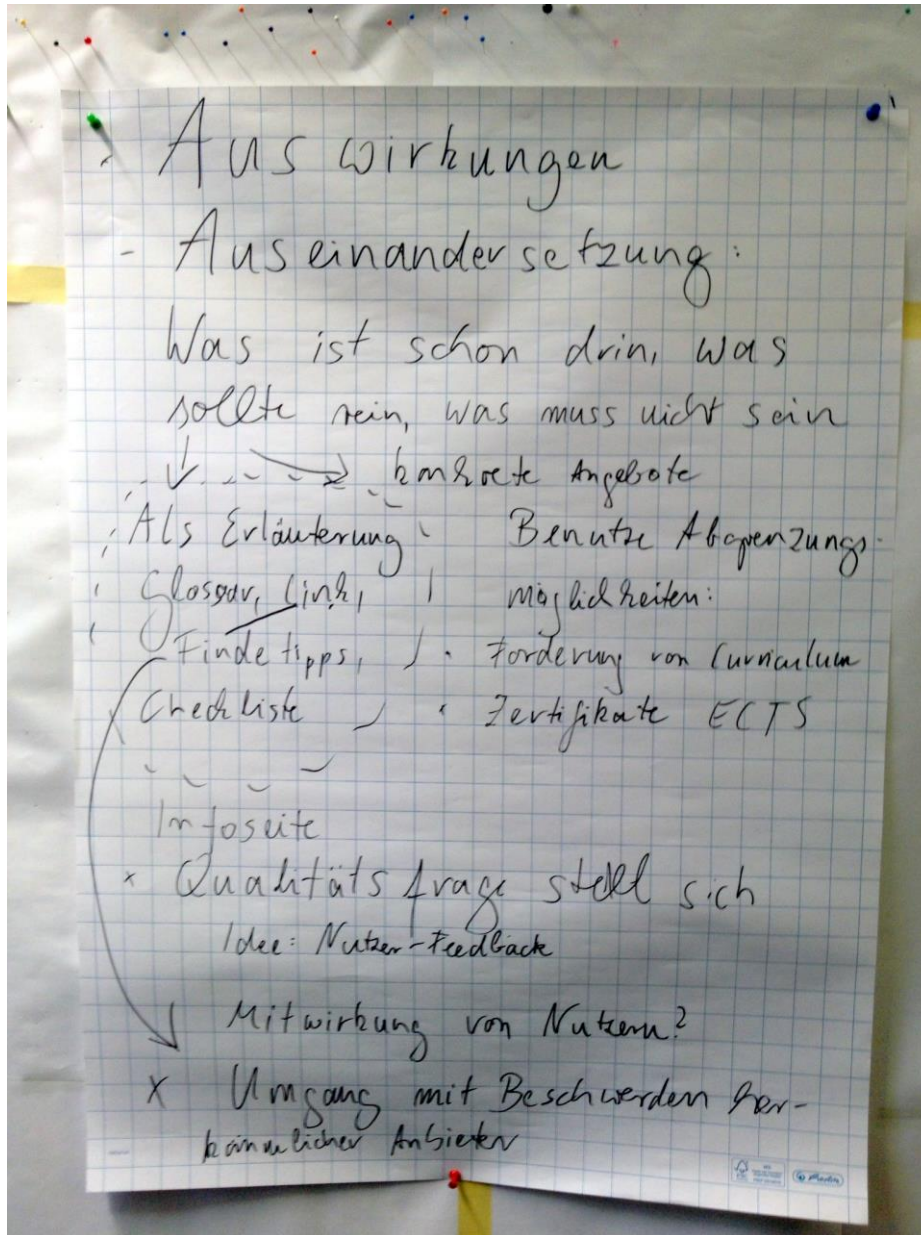 Auswirkungen
- Auseinandersetzung:
Was ist schon drin, was
sollte rein, was muss nicht sein
konkrete Angebote
Als Erläuterung
Glossar, Link,
Findetipps,
Checkliste
Infoseite
Benutze Abgrenzungs-
möglichkeiten:
· Forderung von Curriculum
· Zertifikate ECTS
x Qualitätsfrage stellt sich
Idee: Nutzer-Feedback
Mitwirkung von Nutzern?
x Umgang mit Beschwerden her-
kömmlicher Anbieter